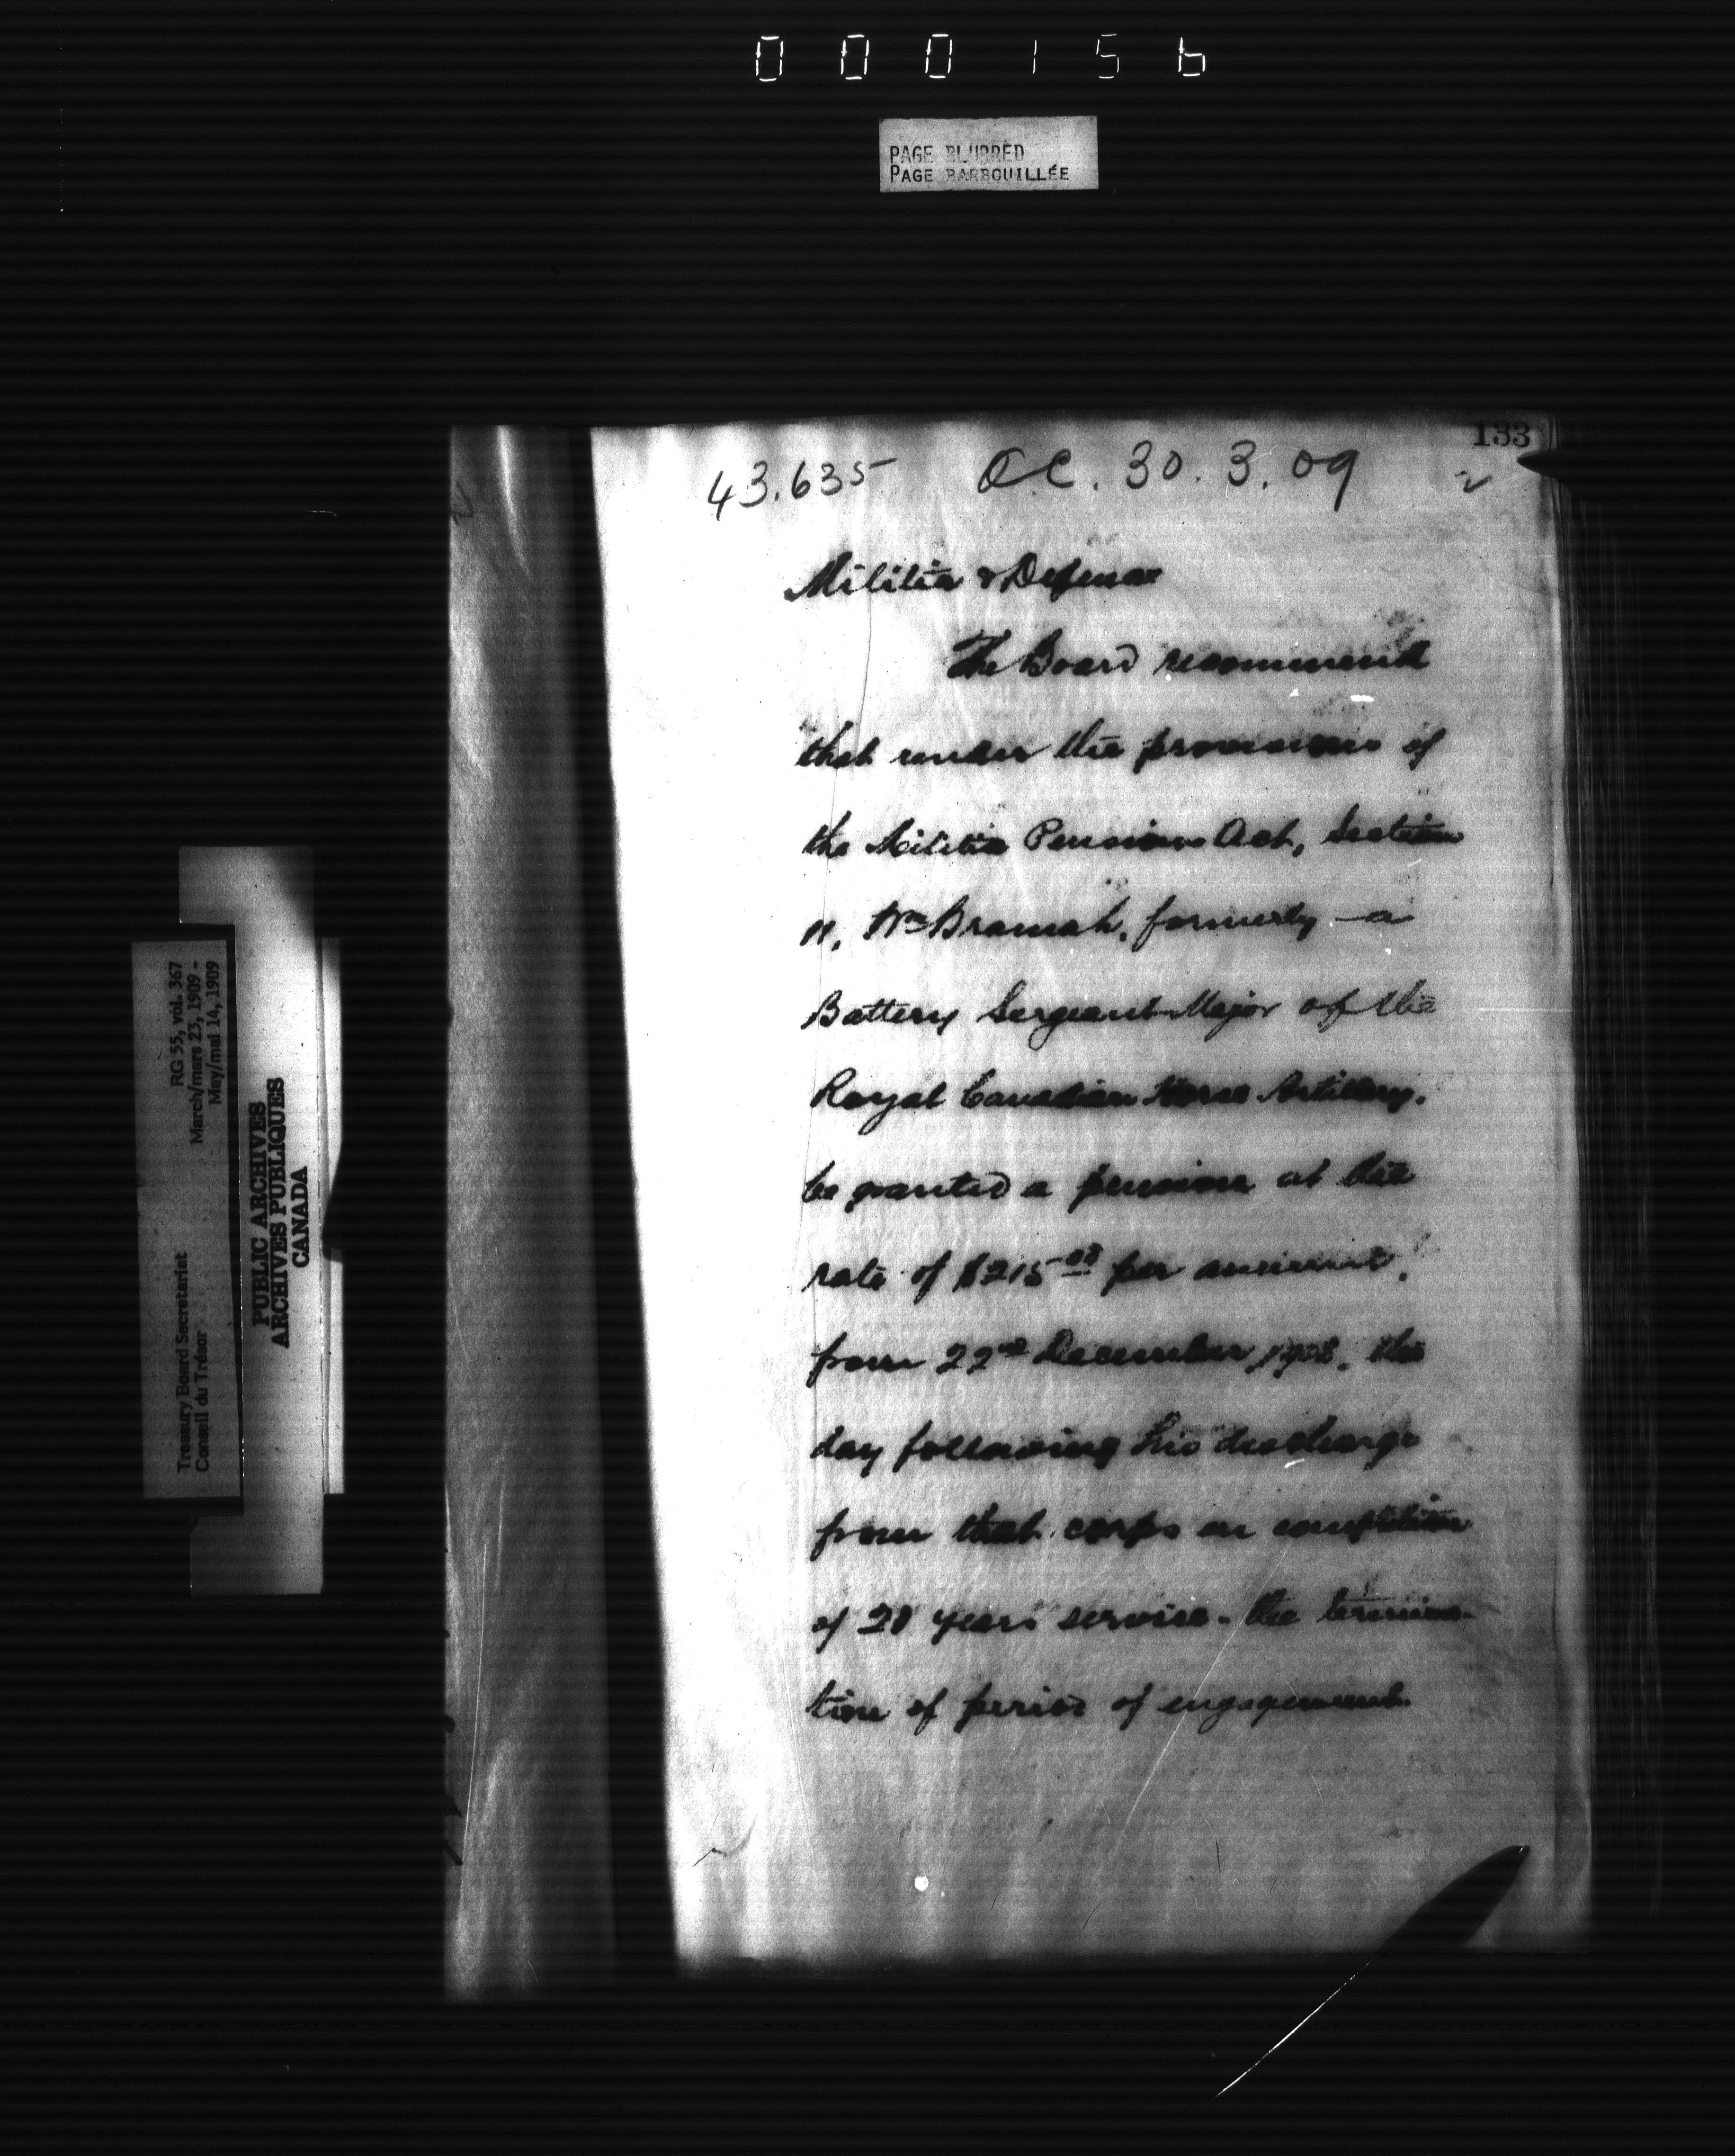 000156
PAGE BLURRED
PAGE BARBOUILLÉE
133
43.635 OC. 30.3.09
Militia & Defence
The Board recommend
that under the provisions of
the Militia Pension Act, Section
11, Wm Bramah, formerly a
Battery Sergeant-Major of the
Royal Canadian Horse Artillery,
be granted a pension at the
rate of $215.00 per annum,
from 22nd December, 1908, the
day following his discharge
from that corps on completion
of years' service - the termina-
tion of period of engagement.
RG 55, vol. 367
March/mars 23, 1909 -
May/mai 14, 1909
Treasury Board Secretariat
Conseil du Trésor
PUBLIC ARCHIVES
ARCHIVES PUBLIQUES
CANADA